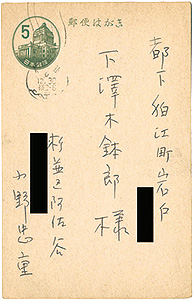 郵便はがき
5
日本郵便
都下狛江町岩戸
下澤木鉢郎様
杉並区阿佐谷
小野忠重